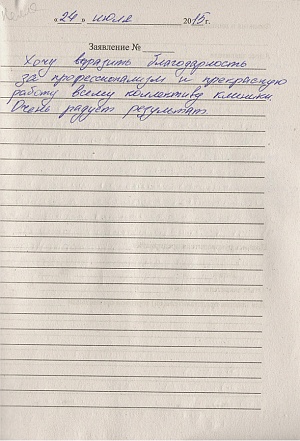 « 24 » июля 2015г.
Заявление №
Хочу выразить благодарность
за профессионализм и прекрасную
работу всему коллективу клиники.
Очень радует результат.